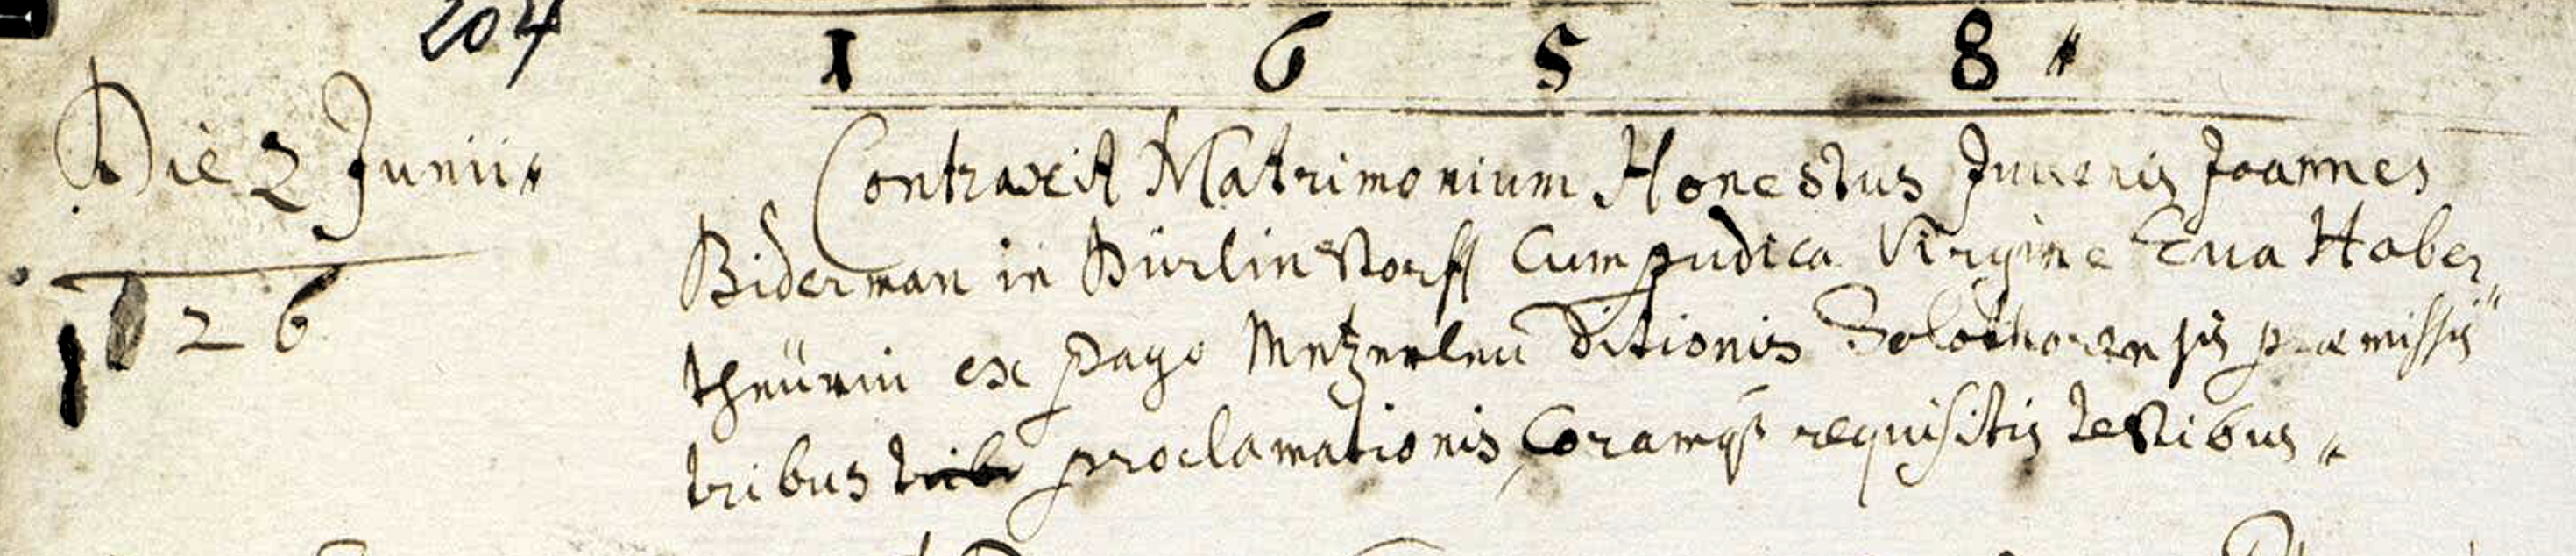 204
1 6 5 8 "
Die 2 Junii"
Contraxit Matrimonium Honestus Juuenis Joannes
Biderman in Bürlinstorff Cum pudica Virgine Eua Haber
theürin ex pago Metzerleu Ditionis Solothorensis præmissis
tribus trib proclamationis Coramq3 requisitis testibus "
126